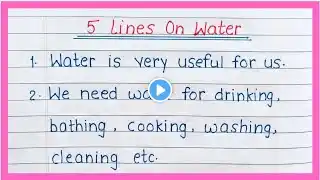 5 Lines On Water
1. Water is very useful for us.
2. We need wat for drinking,
bathing, cooking, washing,
cleaning etc.